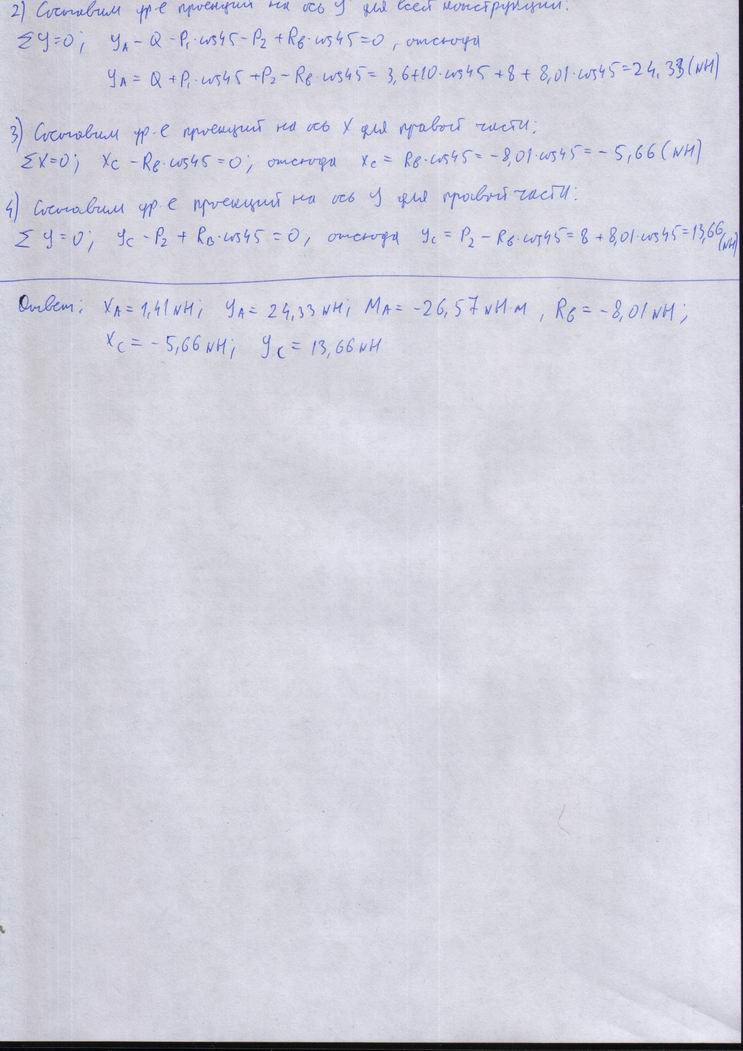 2) Составим ур-е проекций на ось У для всей конструкции:
ΣУ=0; У_A - Q - P₁·cos45 - P₂ + R_B·cos45=0, отсюда
У_A = Q + P₁·cos45 + P₂ - R_B·cos45 = 3,6+10·cos45 + 8 + 8,01·cos45=24,33(кН)
3) Составим ур-е проекций на ось Х для правой части:
ΣX=0; X_C - R_B·cos45=0; отсюда X_C = R_B·cos45 = -8,01·cos45 = -5,66(кН)
4) Составим ур-е проекций на ось У для правой части:
ΣУ=0; У_C - P₂ + R_B·cos45=0, отсюда У_C = P₂ - R_B·cos45=8 + 8,01·cos45=13,66(кН)
Ответ: X_A = 1,41кН; У_A = 24,33кН; M_A = -26,57кН·м, R_B = -8,01кН;
X_C = -5,66кН; У_C = 13,66кН